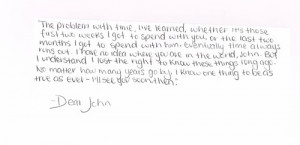 The problem with time, I've learned, whether it's those
first two weeks I got to spend with you, or the last two
months I got to spend with him. Eventually time always
runs out. I have no idea where you are in the world, John. But
I understand I lost the right to know these things long ago.
No matter how many years go by, I know one thing to be as
true as ever - I'll see you soon then."
-Dear John